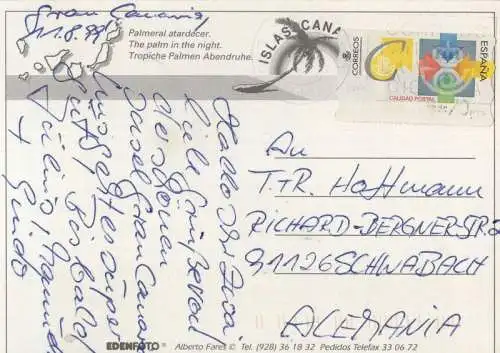 Gran Canaria,
Palmeral atardecer.
The palm in the night.
Tropiche Palmen Abendruhe.
ISLAS CANA
CORREOS
ESPAÑA
CALIDAD POSTAL
Hallo Ihr
viele Grüße von
der schönen
Insel Gran Cana
Bis bald
Guido
An
T.+R. Hoffmann
RICHARD-BERGNER-STR.
91126 SCHWABACH
ALEMANIA
EDENFOTO Alberto Fares © Tel. (928) 36 18 32 Pedidos Telefax 33 06 72